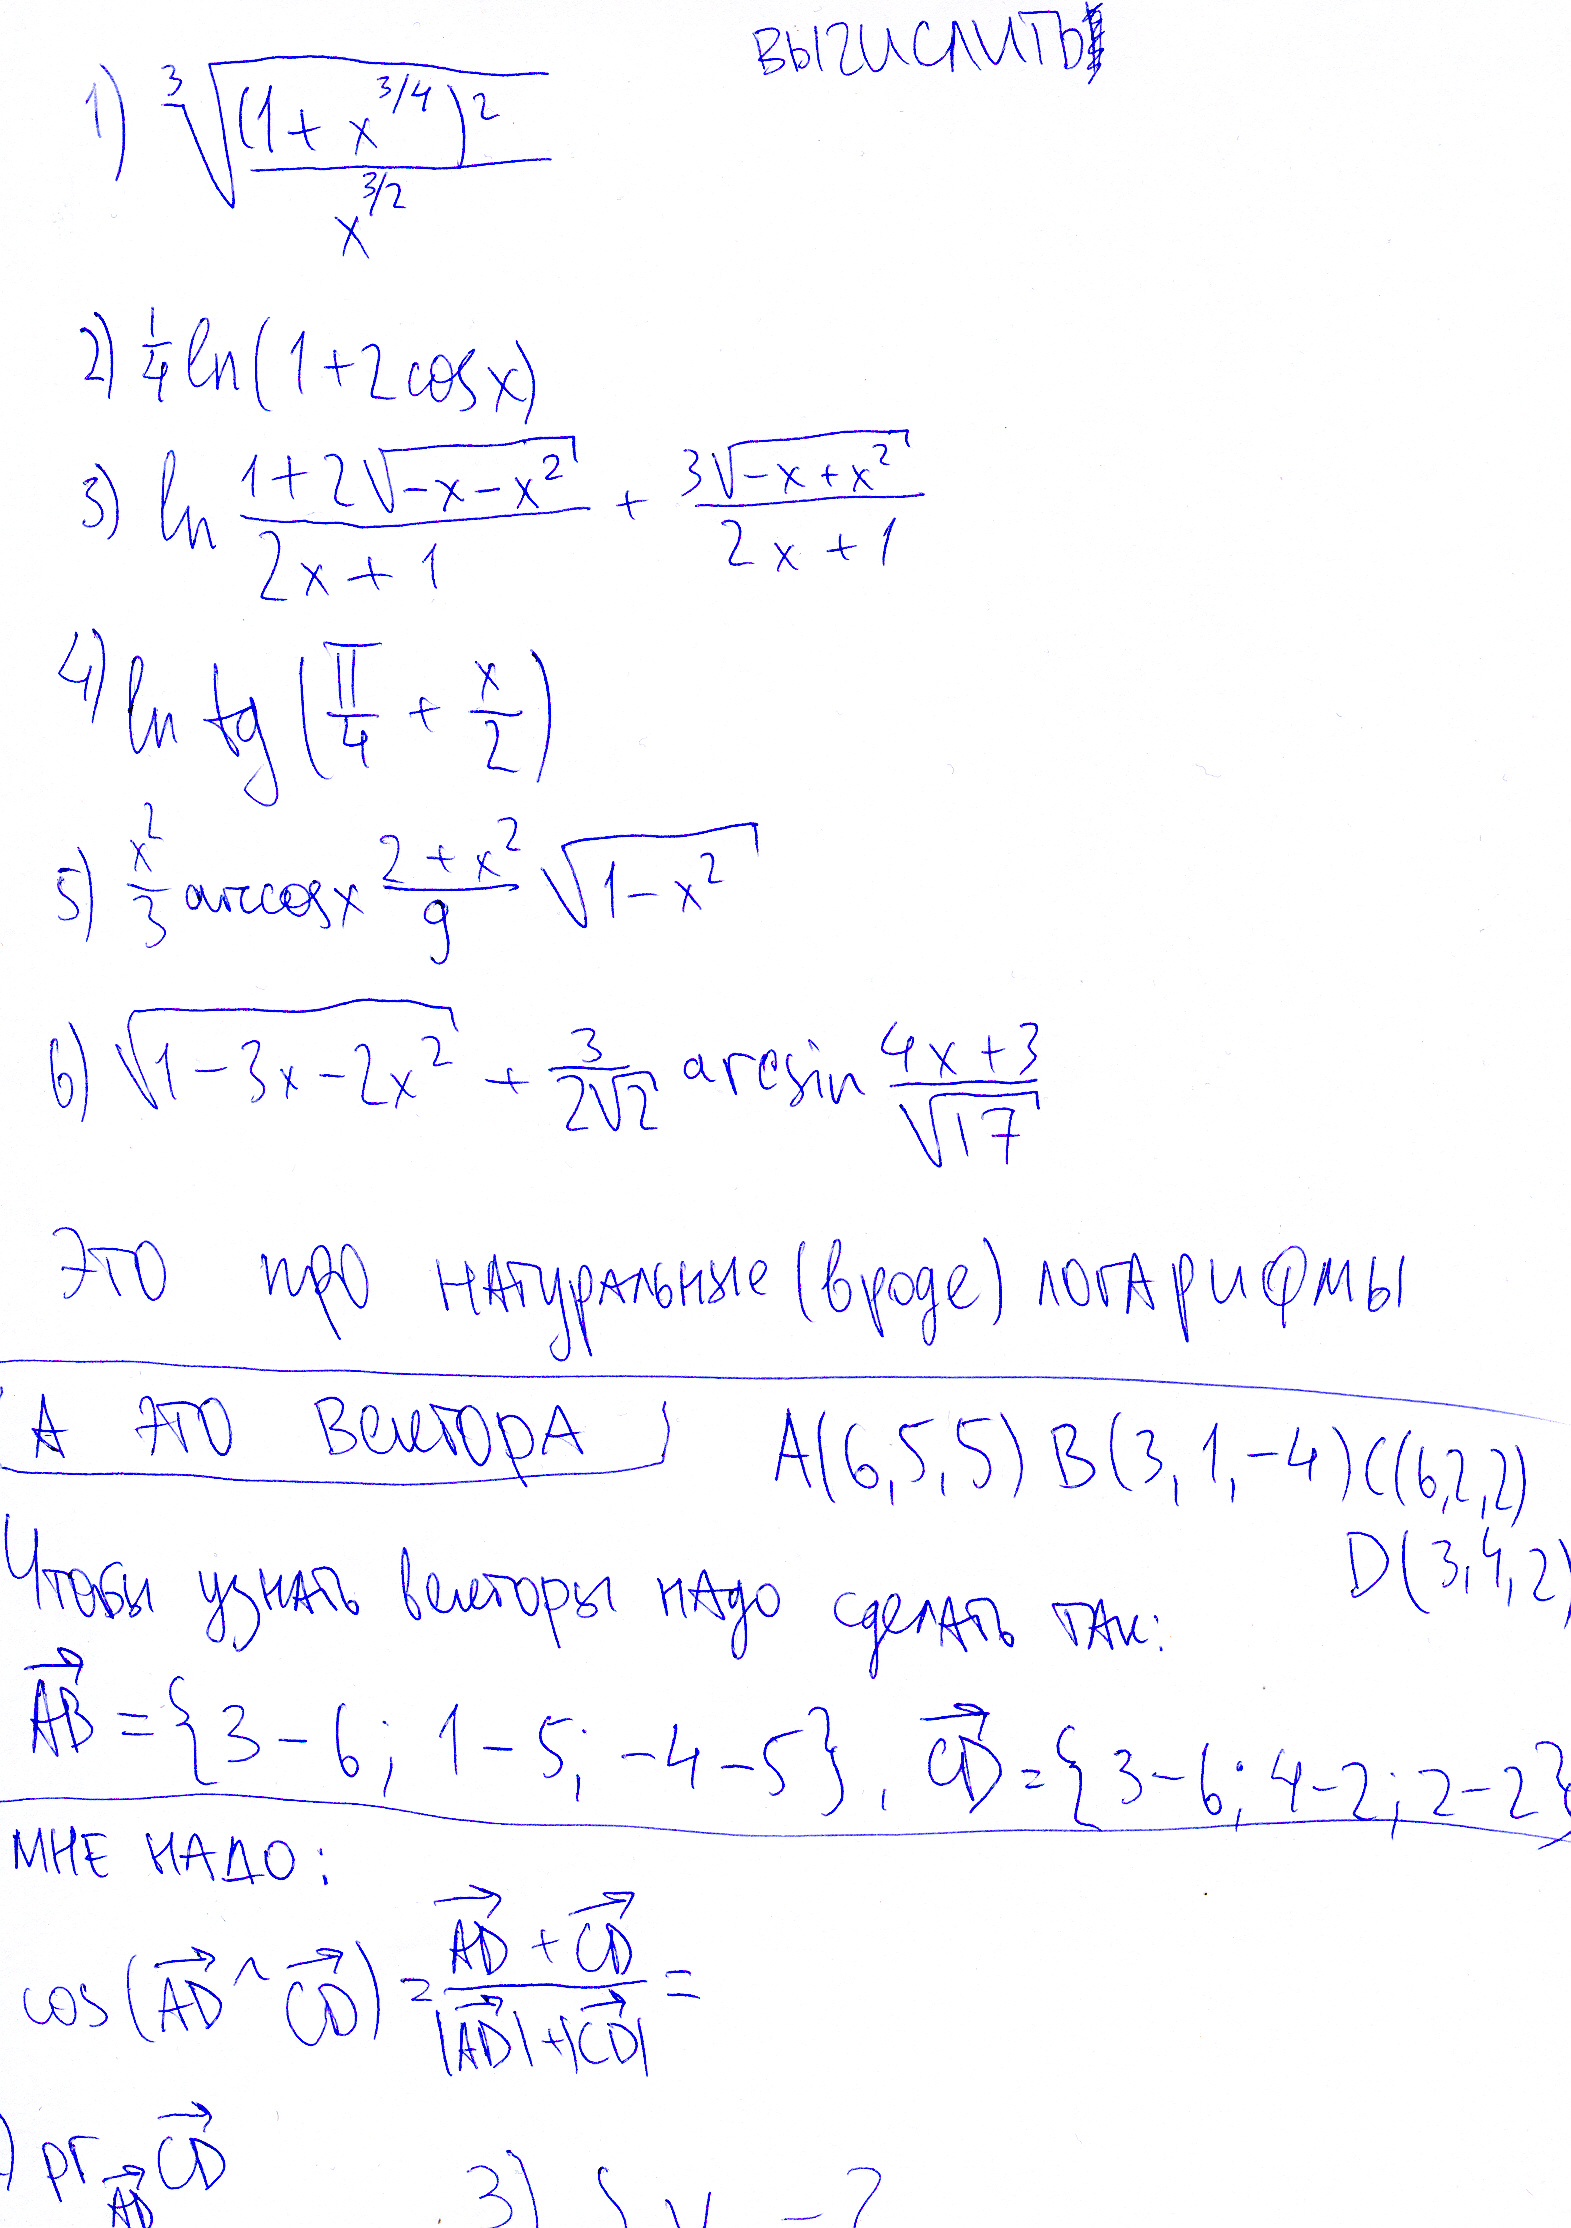 ВЫЧИСЛИТЬ
1) ∛((1 + x^(3/4))² / x^(3/2))
2) 1/4 ln(1+2cosx)
3) ln (1+2√(-x-x²))/(2x+1) + (3√(-x+x²))/(2x+1)
4) ln tg (π/4 + x/2)
5) x²/3 arccosx (2+x²)/9 √(1-x²)
6) √(1-3x-2x²) + 3/(2√2) arcsin (4x+3)/√17
ЭТО ПРО НАТУРАЛЬНЫЕ (вроде) ЛОГАРИФМЫ
А ЭТО ВЕКТОРА A(6,5,5) B(3,1,-4) C(6,2,2)
D(3,4,2)
Чтобы узнать векторы надо сделать так:
AB→ = {3-6; 1-5; -4-5}, CD→ = {3-6; 4-2; 2-2}
МНЕ НАДО:
cos(AD→ ^ CD→) = (AD→ + CD→)/(|AD→|+|CD→|) =
) pr_AD→ CD→ 3)